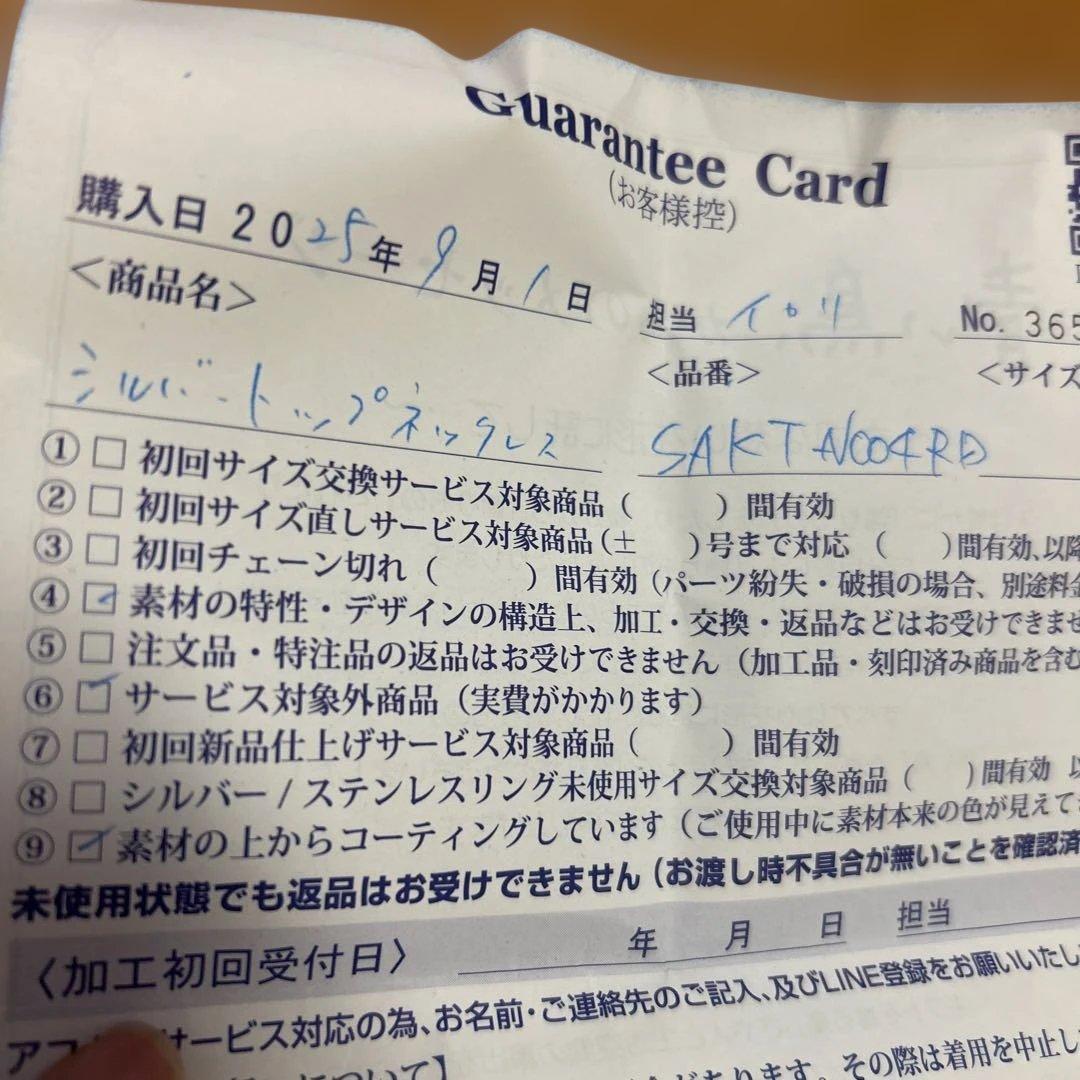 Guarantee Card
(お客様控)
購入日 2025年 9月 1日 担当 イカリ No. 365
<商品名> <品番> <サイズ
シルバートップネックレス SAKTN004RD
① □ 初回サイズ交換サービス対象商品 ( ) 間有効
② □ 初回サイズ直しサービス対象商品 (± )号まで対応 ( )間有効、以降
③ □ 初回チェーン切れ ( ) 間有効 (パーツ紛失・破損の場合、別途料金
④ ☑ 素材の特性・デザインの構造上、加工・交換・返品などはお受けできませ
⑤ □ 注文品・特注品の返品はお受けできません (加工品・刻印済み商品を含む
⑥ ☑ サービス対象外商品 (実費がかかります)
⑦ □ 初回新品仕上げサービス対象商品 ( ) 間有効
⑧ □ シルバー / ステンレスリング未使用サイズ交換対象商品 ( )間有効 以
⑨ ☑ 素材の上からコーティングしています (ご使用中に素材本来の色が見えて
未使用状態でも返品はお受けできません (お渡し時不具合が無いことを確認済
〈加工初回受付日〉 年 月 日 担当
サービス対応の為、お名前・ご連絡先のご記入、及びLINE登録をお願いいたし
について】
あります。その際は着用を中止し